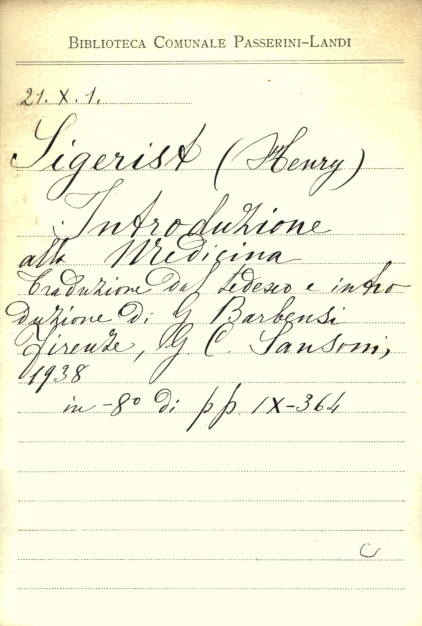 BIBLIOTECA COMUNALE PASSERINI-LANDI
21. X. 1.
Sigerist (Henry)
Introduzione
alla Medicina
Traduzione dal tedesco e intro
duzione di G Barbensi
Firenze, G. C. Sansoni,
1938
in -8° di pp. IX-364
C